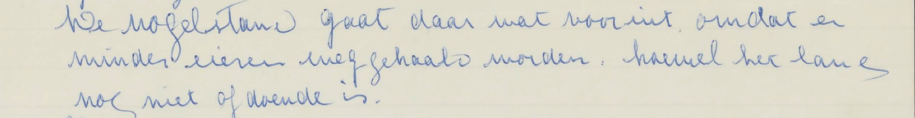 De vogelstand gaat daar wat vooruit, omdat er
minder eieren weggehaald worden, hoewel het lang
nog niet afdoende is.